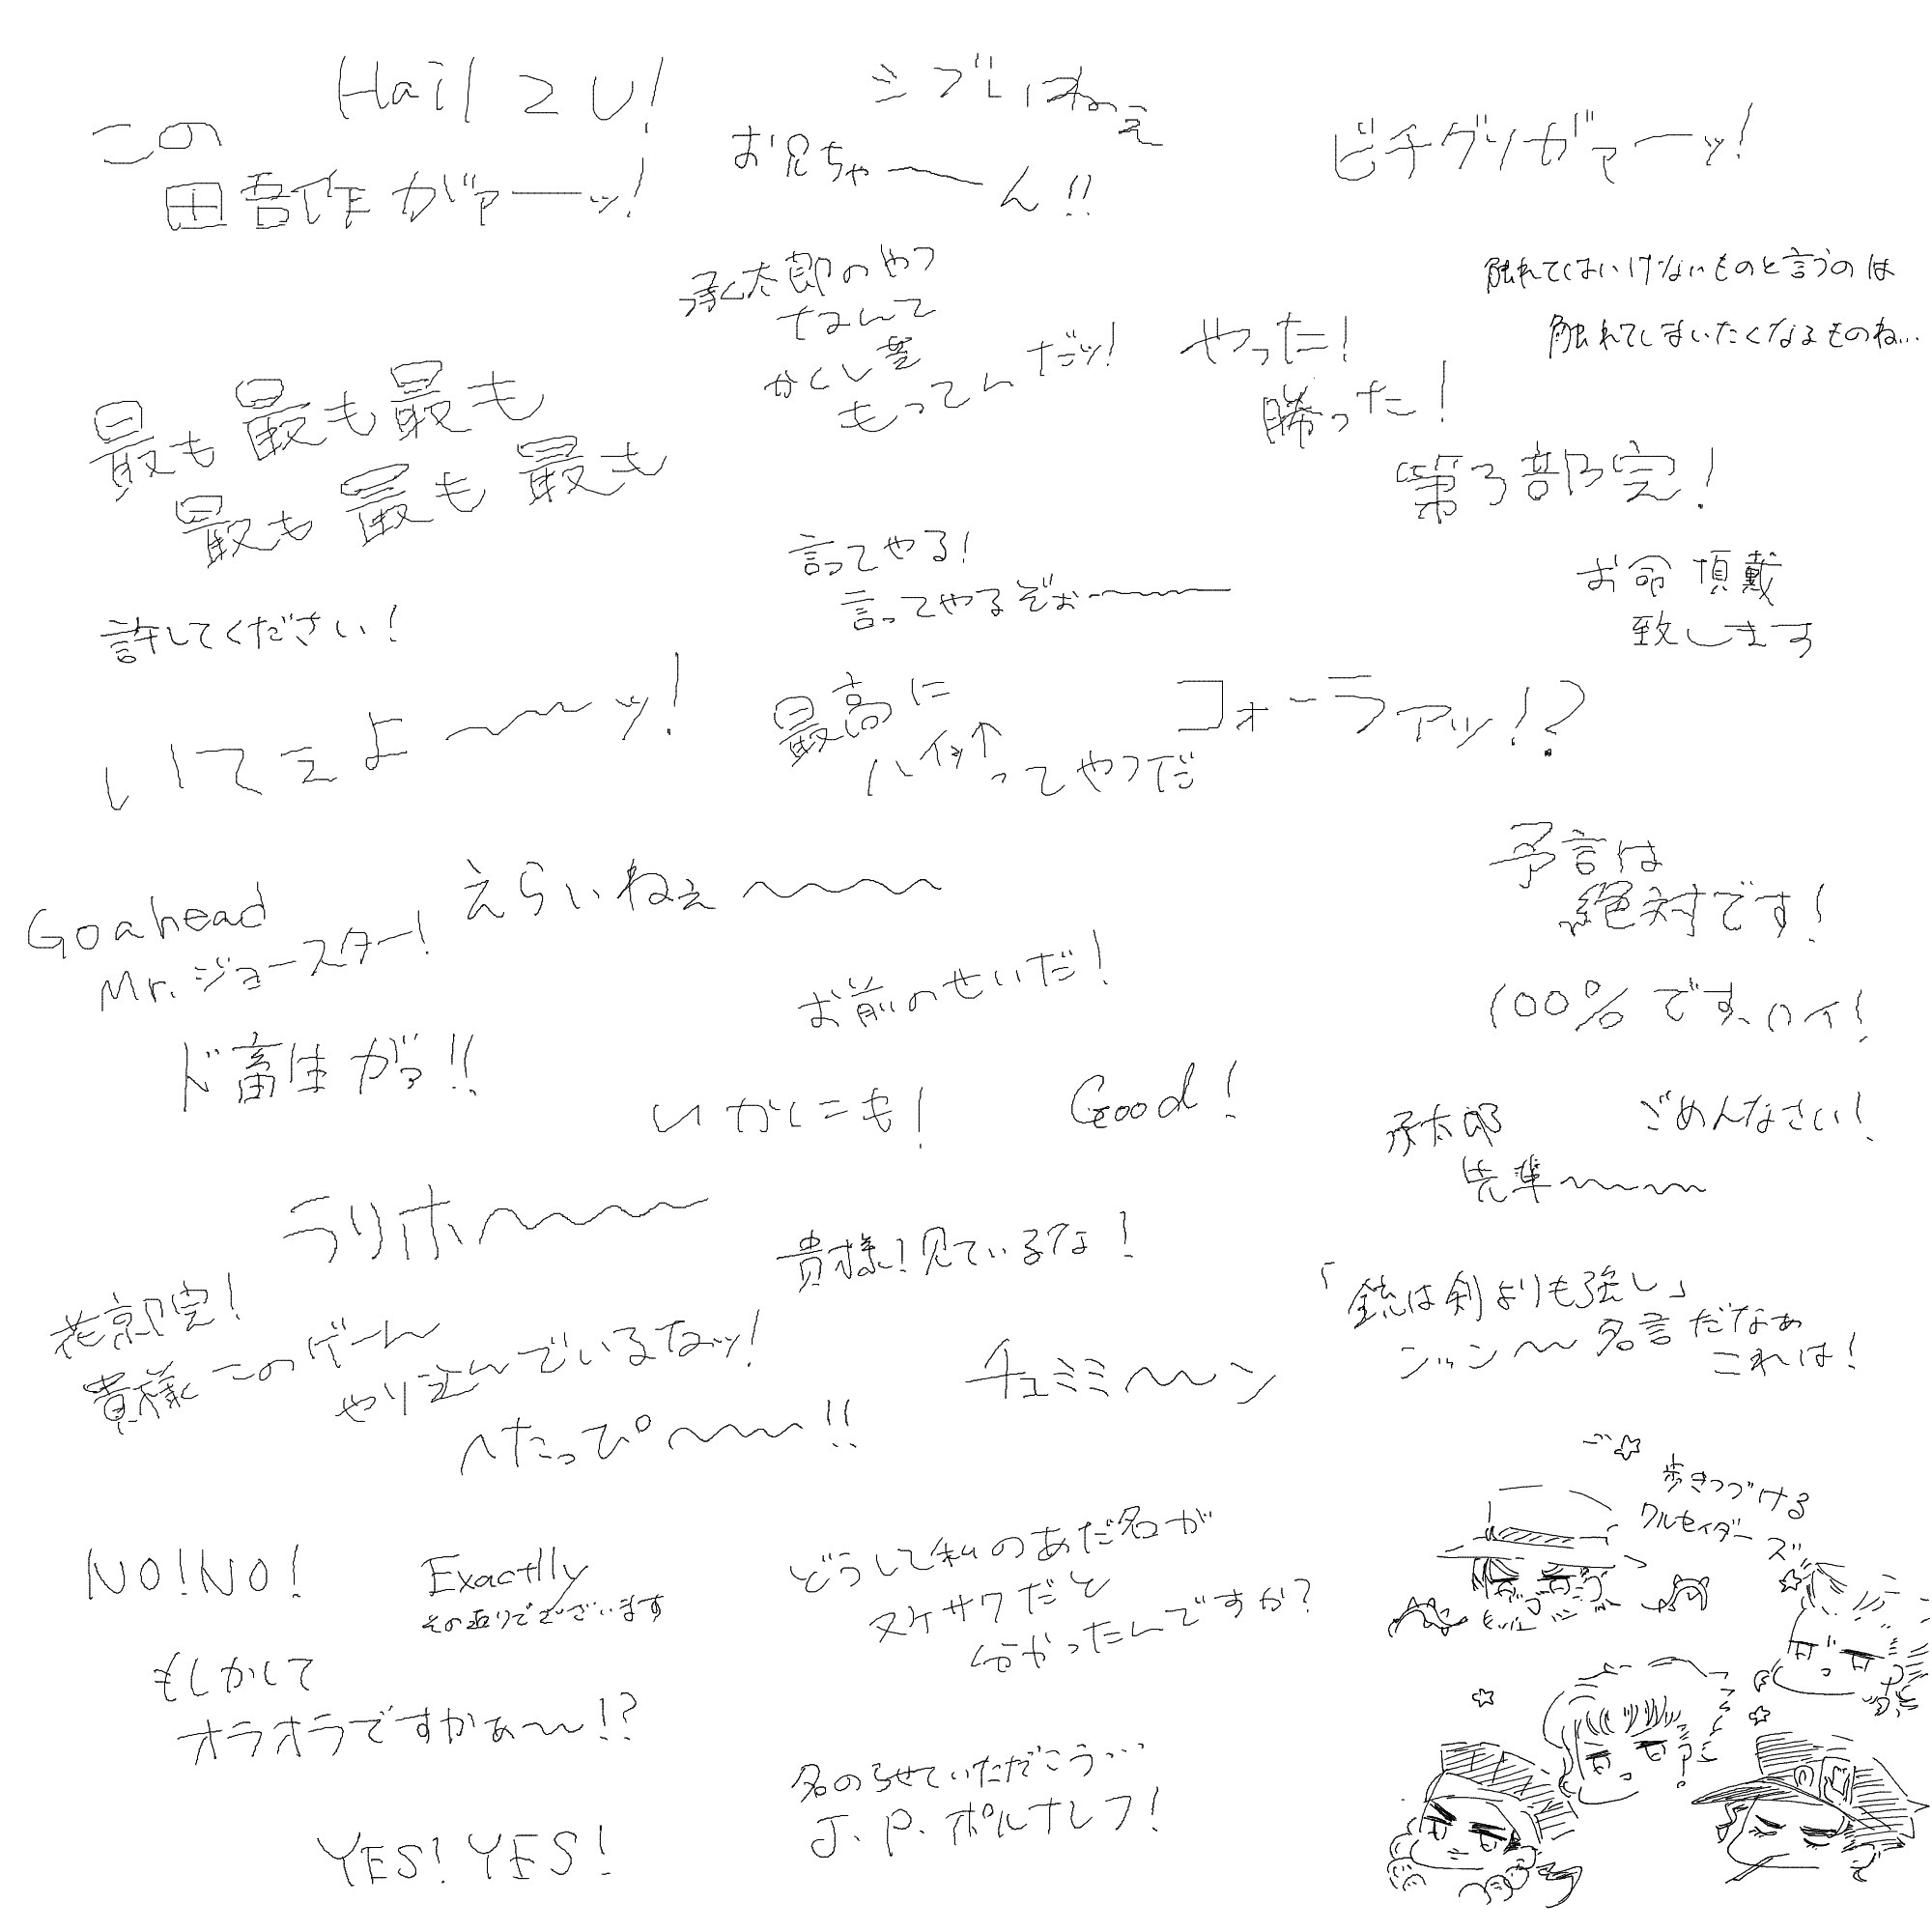 Hail 2 U!
この
田吾作がァーッ!
シブいねぇ
お兄ちゃ〜ん!!
ビチグソがァーッ!
承太郎のやつ
なんて
かくし芸
もってんだッ!
触れてはいけないものと言うのは
触れてしまいたくなるものね…
やった!
勝った!
第3部完!
最も最も最も
最も最も最も
言ってやる!
言ってやるぞぉ〜
お命頂戴
致します
許してください!
いてぇよ〜ッ!
最高に
ハイ↑
ってやつだ
コォーラァッ!?
予言は
絶対です!
Go ahead
Mr.ジョースター!
えらいねぇ〜
お前のせいだ!
100%です、ハイ!
ド畜生がァ!!
いかにも!
Good!
承太郎
先輩〜
ごめんなさい!
ラリホ〜
貴様!見ているな!
花京院!
貴様このゲーム
やり込んでいるなッ!
「銃は剣よりも強し」
ンッン〜名言だなぁ
これは!
チュミミ〜ン
へたっぴ〜!!
ご☆
歩きつづける
クルセイダーズ
NO!NO!
Exactlly
その通りでございます
どうして私のあだ名が
ヌケサクだと
分かったんですか?
もしかして
オラオラですかぁ〜!?
名のらせていただこう…
J.P.ポルナレフ!
YES!YES!